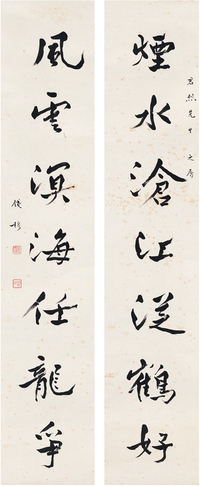 煙水滄江從鶴好
君然先生之屬
風雲溟海任龍爭
錢穆